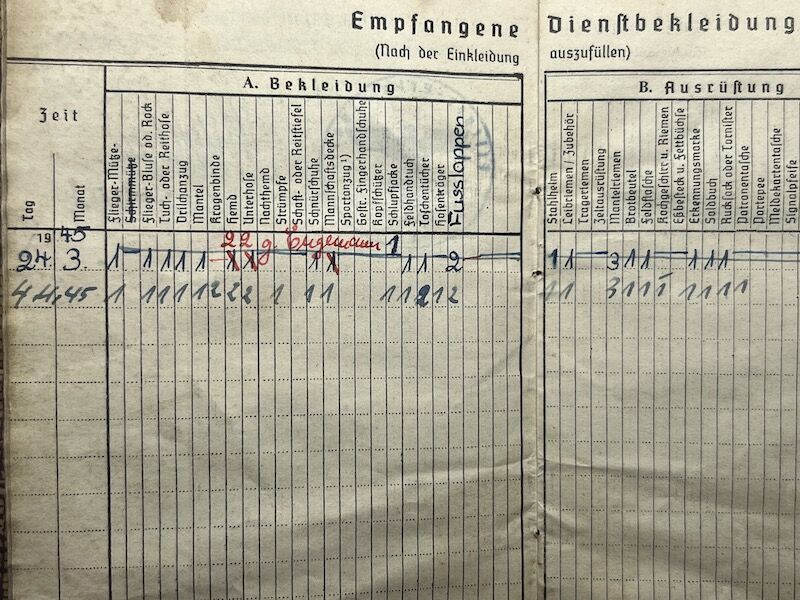 Empfangene Dienstbekleidung
(Nach der Einkleidung auszufüllen)
A. Bekleidung
B. Ausrüstung
Zeit
Tag
Monat
Flieger-Mütze-
Schirmmütze
Flieger-Bluse od. Rock
Tuch- oder Reithose
Drillichanzug
Mantel
Kragenbinde
Hemd
Unterhose
Nachthemd
Strümpfe
Schaft- oder Reitstiefel
Schnürschuhe
Mannschaftsdecke
Sportanzug ¹)
Gestr. Fingerhandschuhe
Kopfschützer
Schlupfjacke
Feldhandtuch
Taschentücher
Hosenträger
Fusslappen
Stahlhelm
Leibriemen / Zubehör
Trageriemen
Zeltausrüstung
Mantelriemen
Brotbeutel
Feldflasche
Kochgeschirr u. Riemen
Eßbesteck u. Fettbüchse
Erkennungsmarke
Soldbuch
Rucksack oder Tornister
Patronentasche
Meldekartentasche
Signalpfeife
1945
2 2 g. 1
24 3. 1 1 1 1 1 1 1 1 1 1 1 2 1 1 3 1 1 1 1 1
4 4. 45 1 1 1 1 1 2 2 2 1 1 1 1 1 2 1 2 1 1 3 1 1 1 1 1 1 1 1